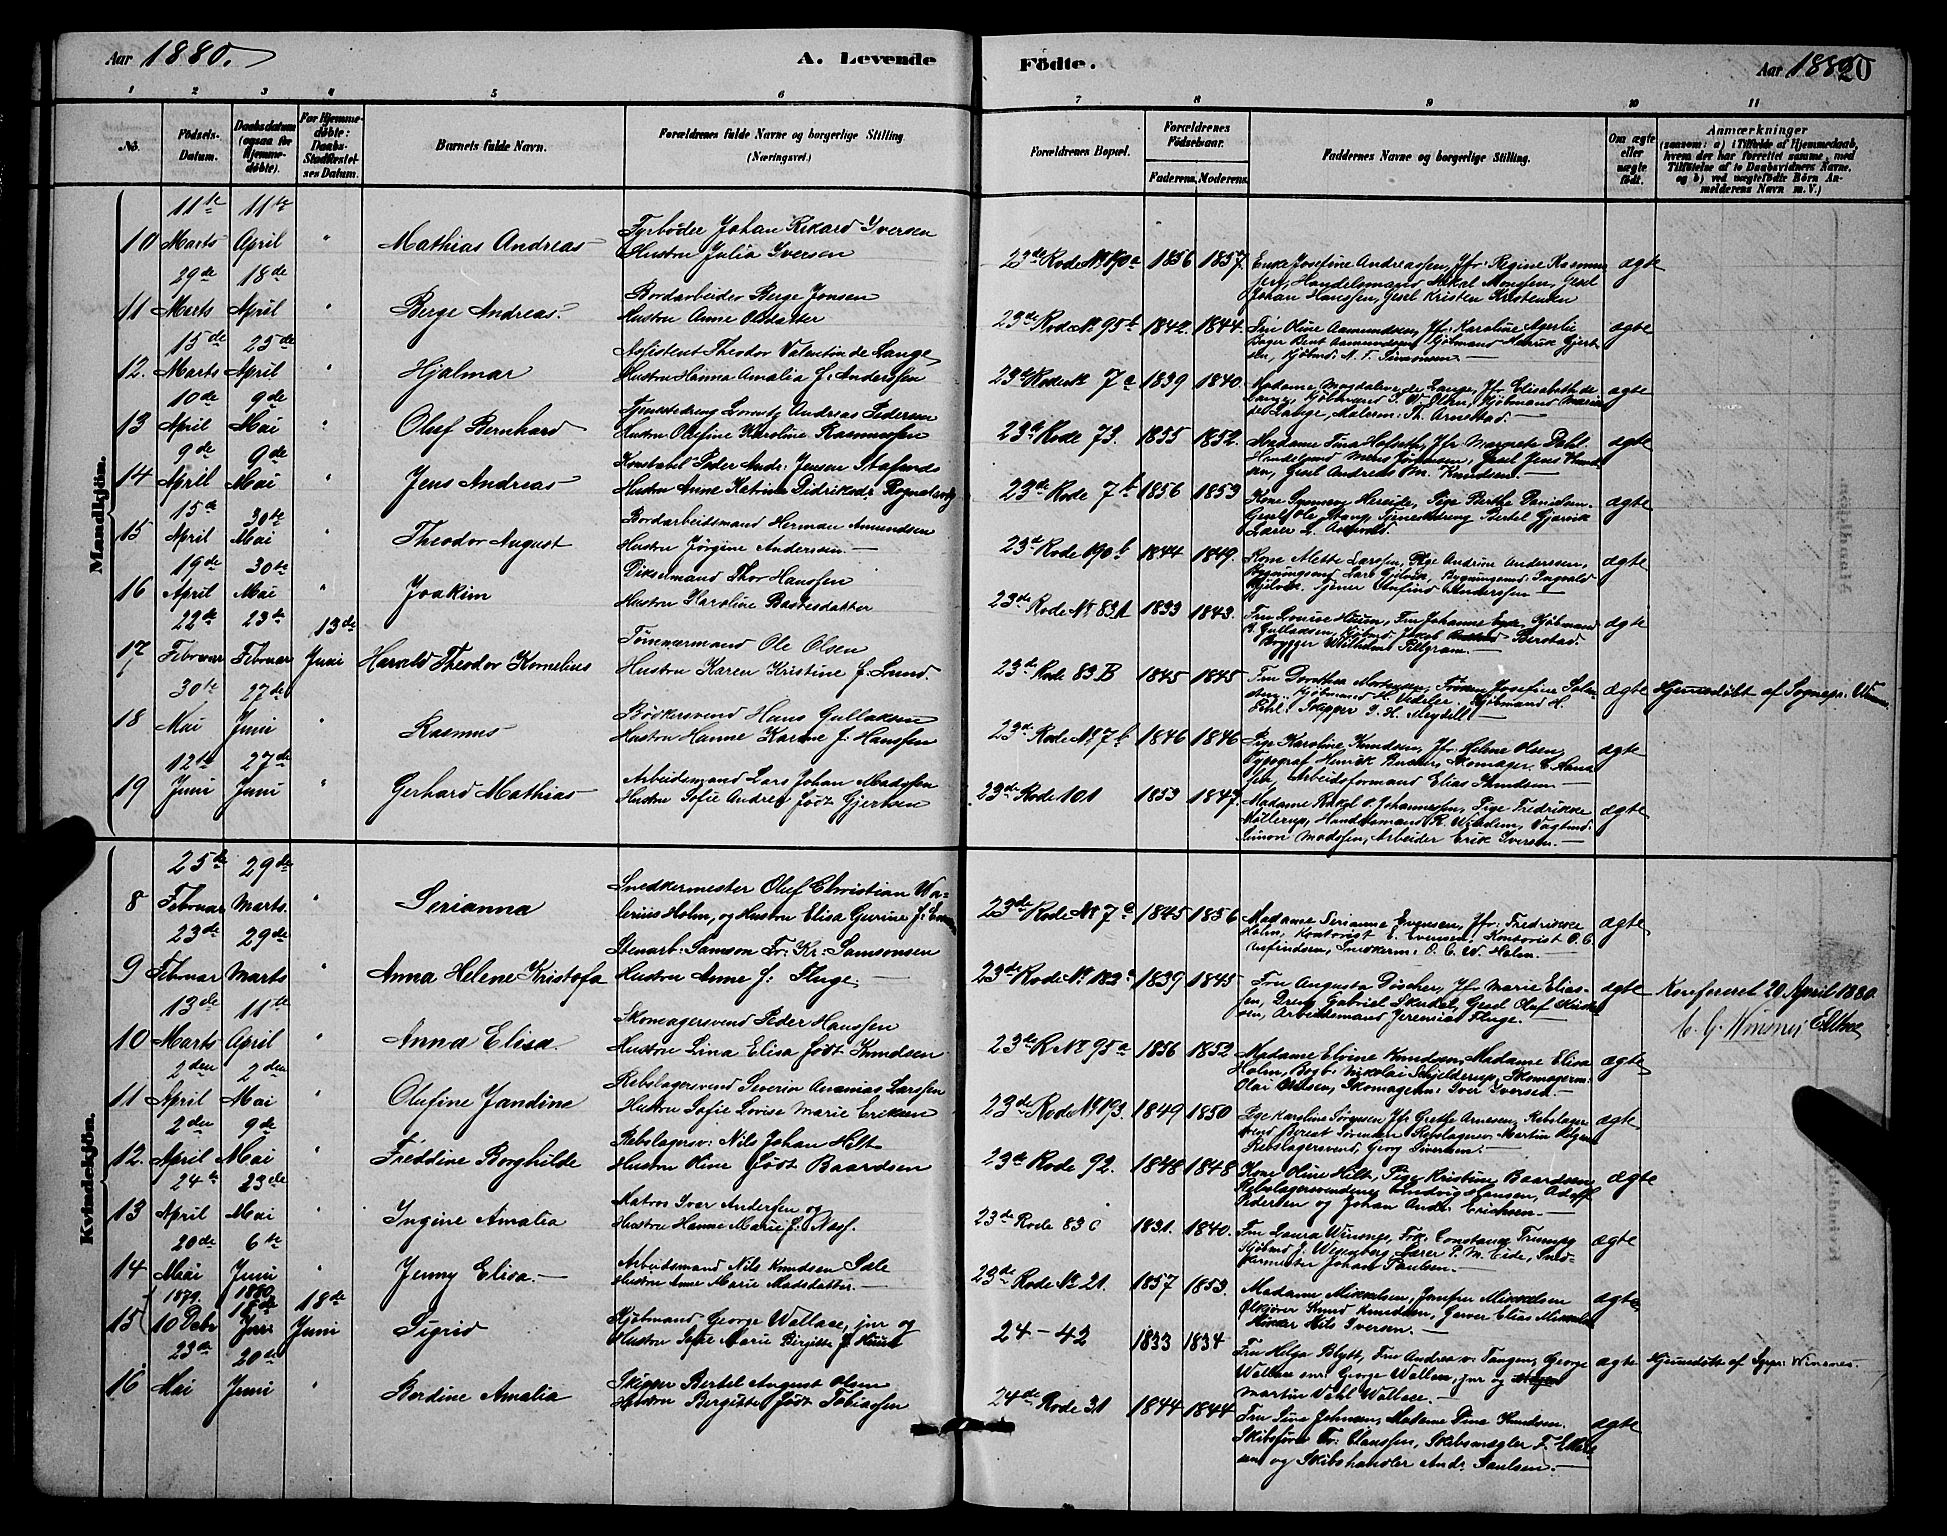 Aar 1880.
A. Levende
Födte.
Aar 1880
20
1 2 3 4 5 6 7 8 9 10 11
No.
Födsels-Datum.
Daabsdatum (ogsaa for Hjemmedøbte).
For Hjemmedøbte: Daabs-Stadfæstelses Datum.
Barnets fulde Navn.
Forældrenes fulde Navne og borgerlige Stilling (Næringsvei.)
Forældrenes Bopæl.
Forældrenes Födselsaar.
Faderens. Moderens.
Faddernes Navne og borgerlige Stilling.
Om ægte eller uægte født.
Anmærkninger
(saasom: a) i Tilfælde af Hjemmedaab,
hvem der har forrettet samme, med
Tilföielse af to Daabsvidners Navne,
og b) ved uægtefödte Börn An-
melderens Navn m. V.)
Mandkjön.
10 11te Marts 11te April " Mathias Andreas
Fyrbøder Johan Rikard Iversen
Hustru Julia Iversen
23de Rode No 190a 1856 1857.
Enke Josefine Andreassen, Jfr: Regine Rasmus
sen, Handelsmand Mikal Monsen, Gesel
Johan Hanssen, Gesel Kristen Kristensen
ægte
11 29de Marts 18de April " Berge Andreas.
Bordarbeider Berge Jonsen
Hustru Anne Olsdatter
23de Rode No 95b 1842. 1844.
Fru Oline Aamundsen, Jfr: Karoline
Bager Bent Aamundsen, Kjøbmand Henrik Gjert
sen, Kjøbmd: N. T. Simonsen.
ægte
12. 15de Marts 25de April " Hjalmar
Assistent Theodor Valentin de Lange
Hustru Hanna Amalia f: Anderssen
23de Rode No 7a 1839 1840.
Madame Magdalene de Lange, Jfr Elisabeth de
Lange, Kjøbmand S. W. Olsen, Kjøbmand Marius
de Lange, Malerm: Th. Arnestad.
ægte
13 10de April 9de Mai " Oluf Bernhard
Tjenestedreng Lorentz Andreas Pedersen
Hustru Olefine Karoline Rasmussen
23de Rode 73. 1855 1852.
Madame Tina Holseth, Jfr: Margrete Dahl.
Handelsmd Mons Jørgensen, Gesel Jens Knud
sen, Gesel Andreas M. Knudsen.
ægte
14 9de April 9de Mai " Jens Andreas
Konstabel Peder Andr: Jensen
Hustru Anne Katrine Didriksd:
23de Rode 7b 1856 1853
Kone Synneva Hereide, Pige Berthe Davidsen.
Gesel Ole Stang, Tjenestedreng Bertel Gjervik
Lærer L. Aasends.
ægte
15 15de April 30te Mai " Theodor August
Bordarbeidsmand Herman Amundsen
Hustru Jørgine Andersen.
23de Rode 190b 1844 1849.
Kone Alette Larsen, Pige Andrine Anderssen,
Bygningsmd Lars Gjelvik, Bygningsmd Ingvald
Gjelvik, Tjener Anfind Anderssen
ægte
16 19de April 30te Mai " Joakim
Dikselmand Thor Hanssen
Hustru Karoline Bastesdatter
23de Rode No 83A 1833 1843.
Fru Louise Huun, Fru Johanne, Kjøbmand
P. Gullaksen, Kjøbmd Jakob Berstad.
Brygger Wilhelm Pillgram.
ægte
17 22de Februar 23de Februar 13de Juni Harald Theodor Kornelius
Tømmermand Ole Olsen
Hustru Karen Kristine f: Lund.
23de Rode 83B 1845 1845
Fru Dorothea Mortensen, Frøken Josefine,
Kjøbmand H.
Skipper J. H. Meydell
ægte Hjemmedøbt af Sognepr: Winsnes.
18 30te Mai 27de Juni " Rasmus
Bødkersvend Hans Gullaksen
Hustru Hanne Karine f: Hanssen
23de Rode No 7b 1846 1846
Pige Karoline Knudsen, Jfr: Helene Olsen,
Typograf Henrik, Skomager,
Arbeidsformand Elias Knudsen.
ægte
19 12te Juni 27de Juni " Gerhard Mathias
Arbeidsmand Lars Johan Madssen
Hustru Sofie Andrea født Gjertsen
23de Rode 101 1853 1847.
Madame Rakel K. Johannessen, Pige Fredrikke
Møllerup, Handelsmand R. Willadsen, Vagtmd:
Simon Madssen, Arbeider Erik Iversen.
ægte
Kvindekjön.
8 25de Februar 29de Marts. " Serianna
Snedkermester Oluf Christian Wa-
lerius Holm, og Hustru Elisa Gurine f:
23de Rode No 7a 1845 1856
Madame Serianne Evensen, Jfr: Fredrikke
Holm, Kontorist E. Evensen, Kontorist O. C.
Arfindsen, Snedkerm: O. C. W. Holm.
ægte
9 23de Februar 29de Marts " Anna Helene Kristofa
Stenarb: Samson Fr: Kr: Samsonsen
Hustru Anne f: Fluge.
23de Rode No 183a 1839 1845
Fru Augusta Döscher, Jfr Marie Elias-
sen, Dreng Gabriel Skudal, Gesel Oluf
sen, Arbeidsmand Jeremias Fluge.
ægte Konfereret 20 April 1880
C. G. Winsnes
10 13de Marts 11te April " Anna Elisa.
Skomagersvend Peder Hanssen
Hustru Lina Elisa født Knudsen
23de R No 95a 1856 1852
Madame Elvine Knudsen, Madame Elisa
Holm, Bogb: Nikolai Schjelderup, Skomagerm:
Olai Olsen, Skomagerm: Iver Iversen.
ægte
11 2den April 2den Mai " Olufine Jandine
Rebslagersvend Severin Ananias Larssen
Hustru Sofie Lovise Marie Eriksen
23de Rode No 193. 1849 1850
Pige Karoline Jørgensen, Jfr: Grethe Arnesen, Rebslager
svend Bernt Sørensen, Rebslagersv: Martin
Rebslagersvend Georg Sivertsen.
ægte
12. 2den April 9de Mai " Freddine Borghilde
Rebslagersv: Nils Johan Hilt
Hustru Oline født Baardsen
23de Rode 92. 1848 1848
Kone Oline Hilt, Pige Kristine Baardsen,
Rebslagersvendene Ludvig Hansen, Adolf
Pedersen og Johan Andr: Erichsen.
ægte
13 24de April 23de Mai " Ingine Amalia
Matros Iver Anderssen og
Hustru Hanne Marie f: Næss.
23de Rode 83c 1831. 1840.
Fru Laura Winsnes, Frk. Constance Trumpy
Kjøbmd J. Wesenberg, Lærer P. M. Eide, Sned-
kermester Johan Paulsen.
ægte
14 20de Mai 6te Juni " Jenny Elisa.
Arbeidsmand Nils Knudsen Sæle
Hustru Anne Marie Madsdatter.
23de Rode No 21. 1857 1853.
Madame Mikkelsen, Jomfru Mikkelsen
Ølkjører Knud Knudsen, Garver Elias Mikkelsen
Nils Iversen.
ægte
15 1879. 10 Debr 1880. 18de Juni 18de Juni Sigrid
Kjøbmand George Wallace jnr og
Hustru Sofie Marie Birgitte f. Huun
24 - 42 1833 1834
Fru Helga Blytt, Fru Andrea v: Tangen, George
Wallace snr: George Wallem, jnr og
Martin Vahl Wallace.
ægte Hjemmedøbt af Sgpr: Winsnes.
16 23de Mai 20de Juni " Bordine Amalia
Skipper Bertel August Olsen
Hustru Bergitte født Tobiassen
24de Rode 31 1844 1844
Fru Sina Johnsen, Madame Dina Knudsen.
Skibsfører Fr: Clausen, Skibsmægler F. Ellert
sen og Skibshandler Andr: Paulsen.
ægte